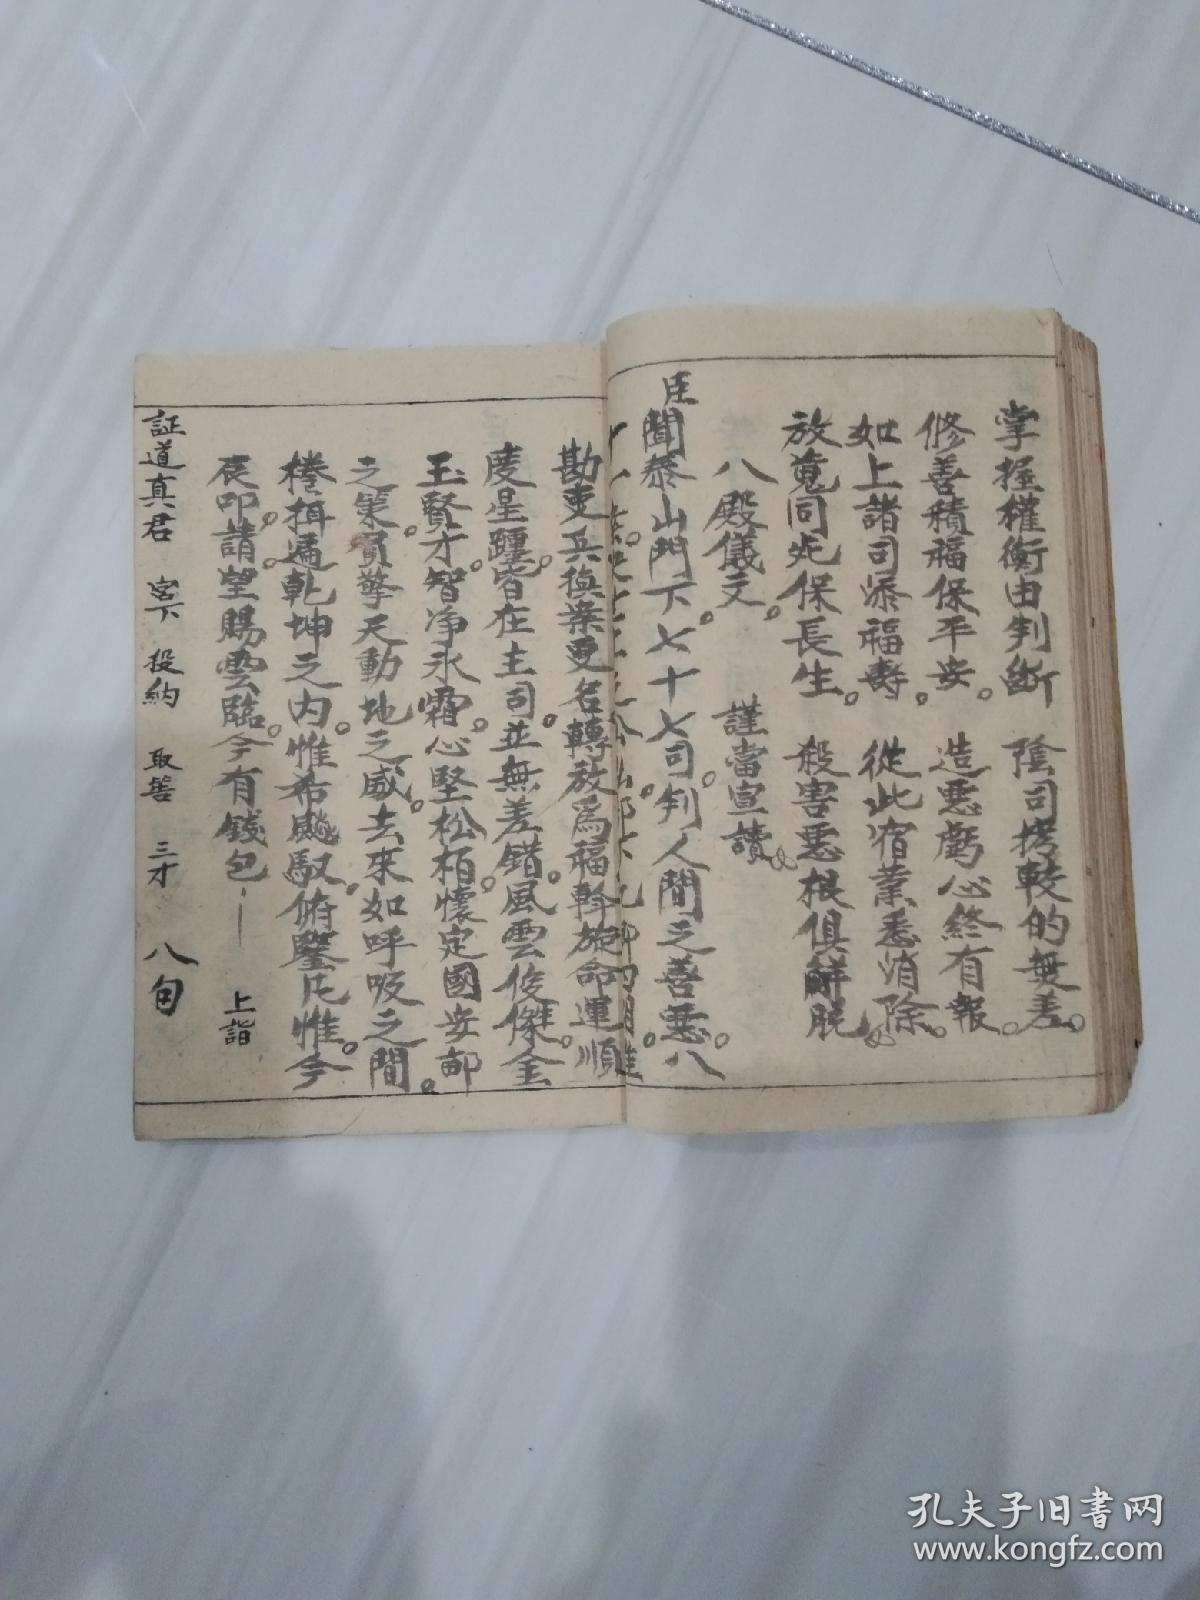 掌握權衡由判斷 陰司考較的無差。
修善積福保平安。 造惡虧心終有報。
如上諸司添福壽。 從此宿業悉消除。
放冤同此保長生。 殺害惡根俱解脫
八殿儀文。 謹當宣讀。
臣聞泰山門下。七十七司。判人間之善惡。八
勘吏兵換案更名轉放為福斡旋命運順
度星躔。皆在主司並無差錯。風雲俊傑。金
玉賢才。智净氷霜。心堅松栢。懷定國安邦
之策。負擎天動地之威。去來如呼吸之間。
捲揖遍乾坤之内。惟希飈馭。俯鑒凡惟。今
辰叩請。望賜雲臨。今有錢包 上詣
証道真君 宮下 投納 取答 三才 八甸
孔夫子旧书网
www.kongfz.com